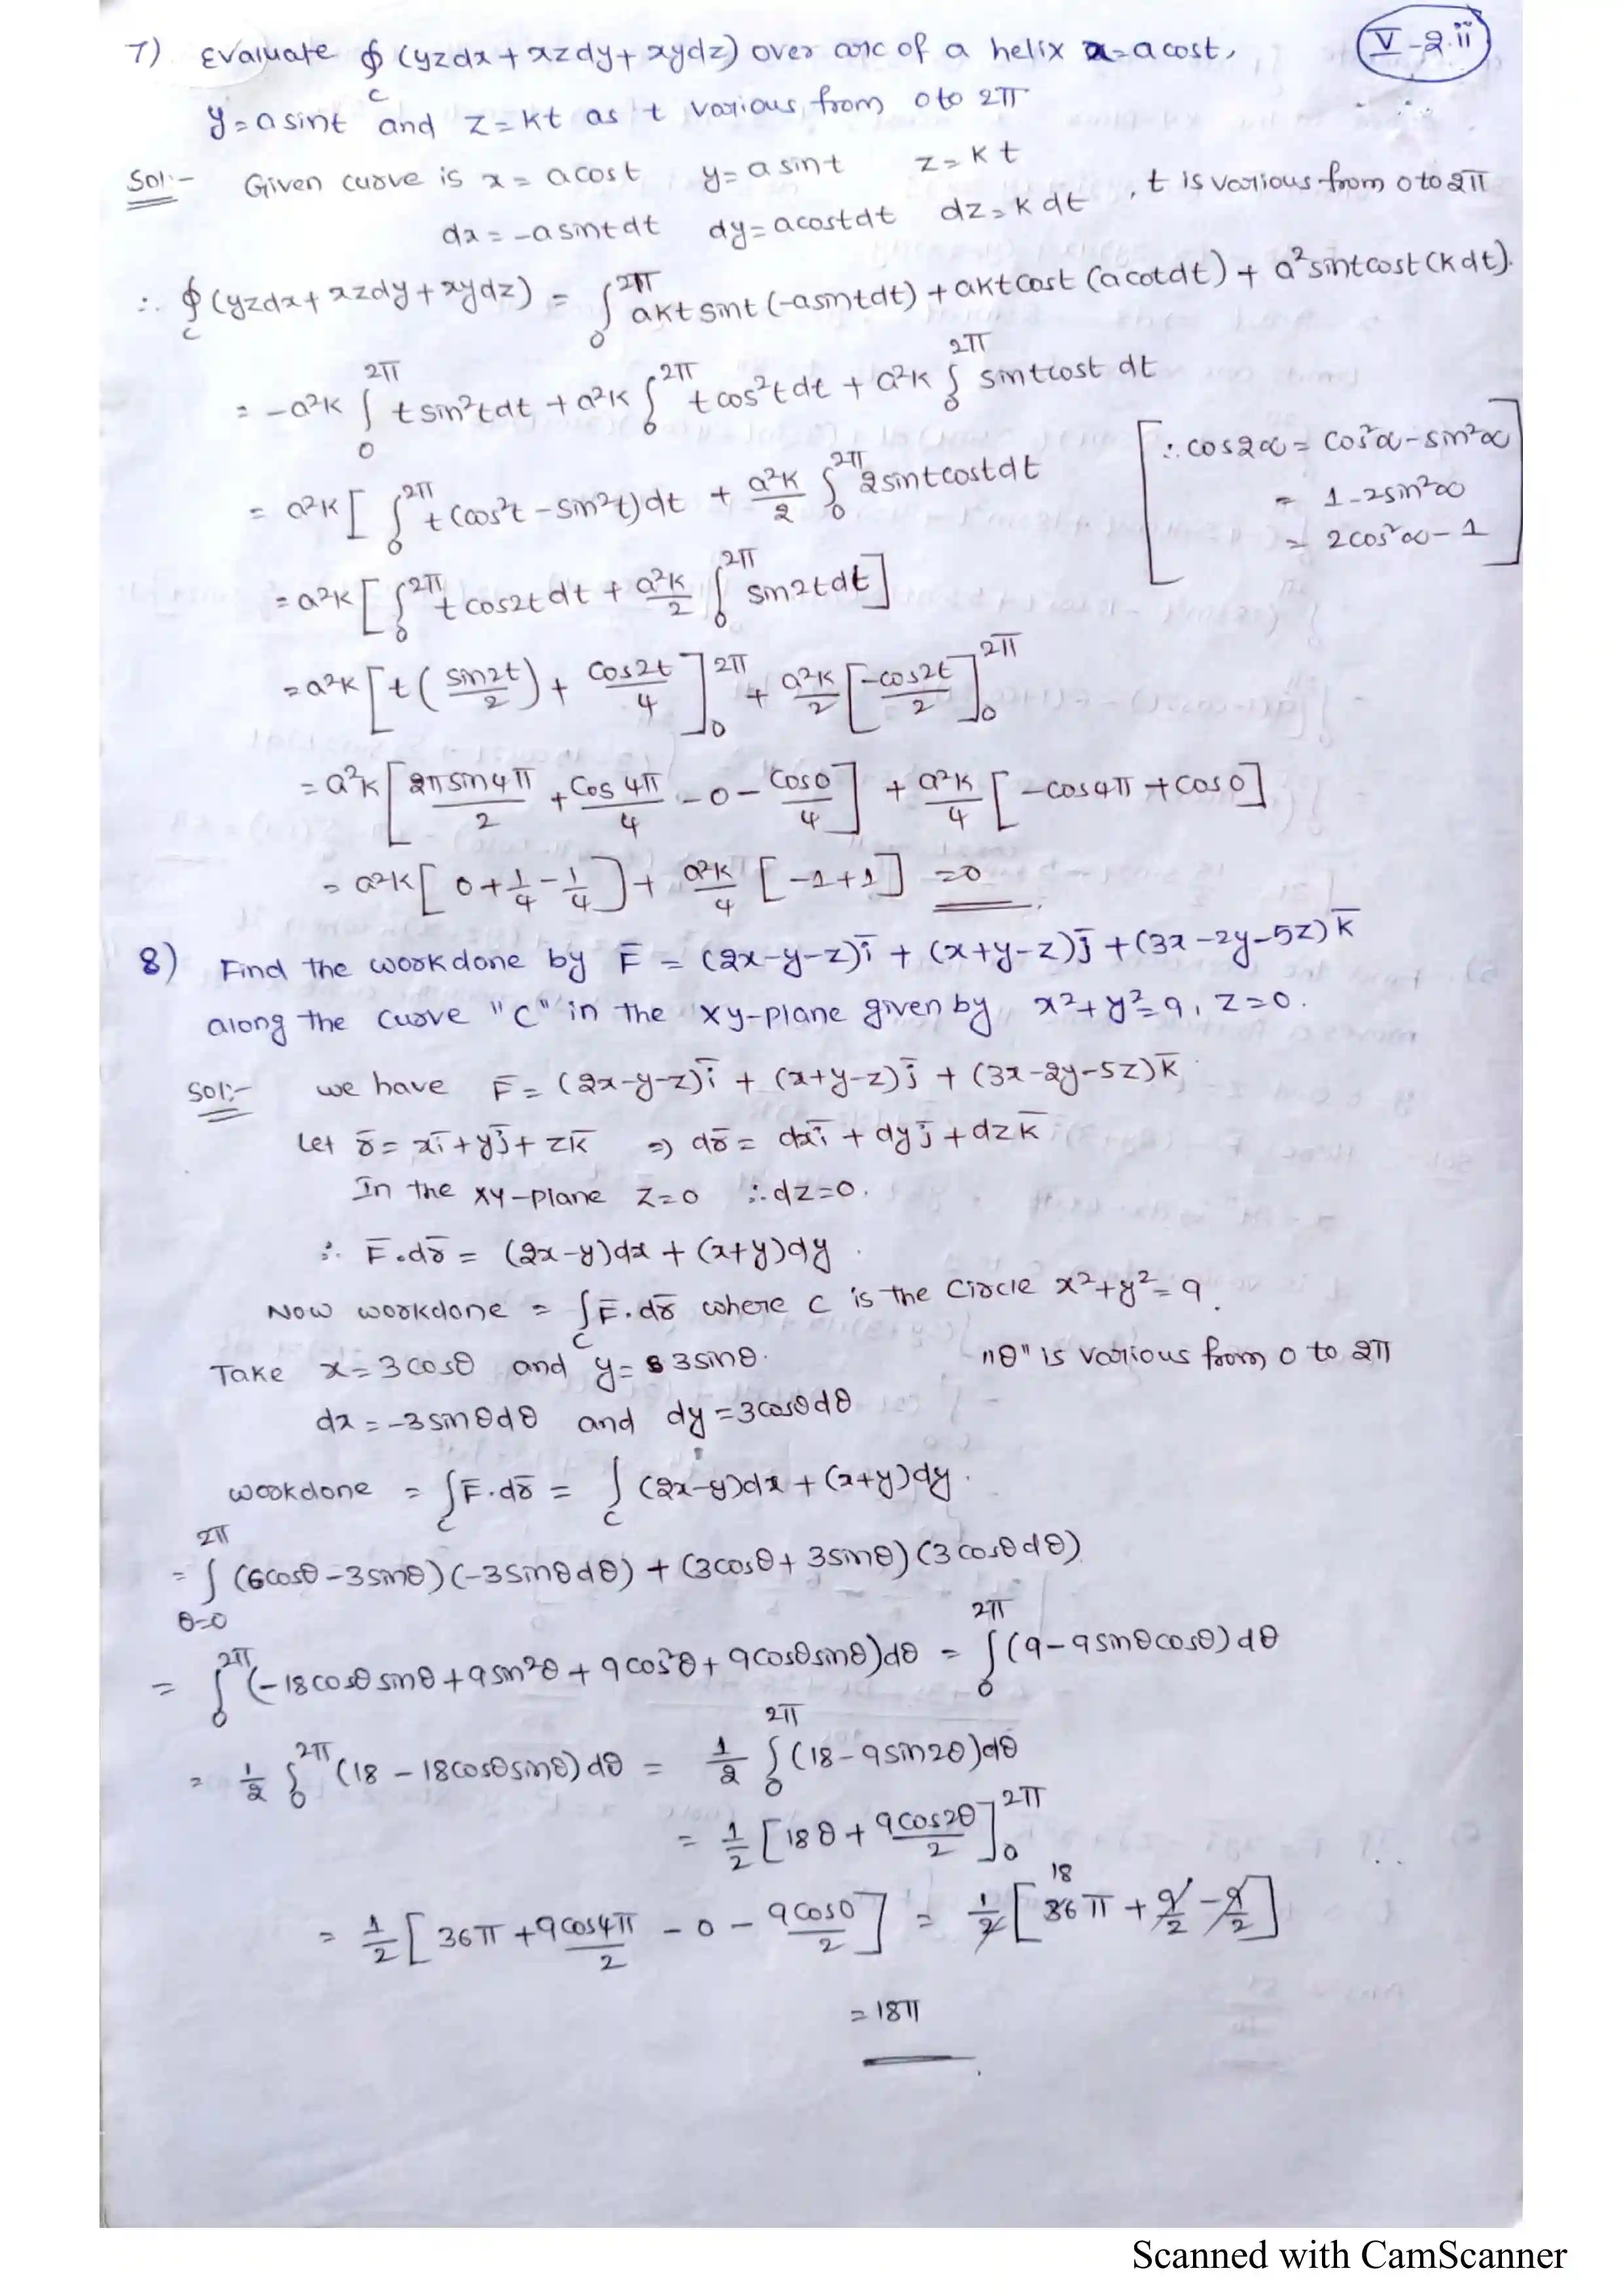 7) Evaluate ∮_C (yzdx + xzdy + xydz) over arc of a helix x = acost,
V-2.ii
y = asint and z = kt as t various from 0 to 2π
Sol:- Given curve is x = acost y = asint z = kt
dx = -asintdt dy = acostdt dz = kdt , t is various from 0 to 2π
∴ ∮_C (yzdx + xzdy + xydz) = ∫_0^{2π} akt sint (-asintdt) + akt cost (acotdt) + a² sint cost (kdt).
= -a²k ∫_0^{2π} t sin²t dt + a²k ∫_0^{2π} t cos²t dt + a²k ∫_0^{2π} sint cost dt
= a²k [ ∫_0^{2π} t (cos²t - sin²t) dt + a²k/2 ∫_0^{2π} 2sintcostdt
[∴ cos2α = cos²α - sin²α
= 1 - 2sin²α
= 2cos²α - 1]
= a²k [ ∫_0^{2π} t cos2t dt + a²k/2 ∫_0^{2π} sin2t dt ]
= a²k [ t (sin2t/2) + cos2t/4 ]_0^{2π} + a²k/2 [ -cos2t/2 ]_0^{2π}
= a²k [ 2π sin4π/2 + Cos 4π/4 - 0 - Cos0/4 ] + a²k/4 [ -cos4π + cos0 ]
= a²k [ 0 + 1/4 - 1/4 ] + a²k/4 [ -1 + 1 ] = 0
8) Find the workdone by F̄ = (2x-y-z)ī + (x+y-z)j̄ + (3x-2y-5z)k̄
along the curve "C" in the xy-plane given by x² + y² = 9, z = 0.
Sol:- we have F̄ = (2x-y-z)ī + (x+y-z)j̄ + (3x-2y-5z)k̄
Let r̄ = xī + yj̄ + zk̄ ⇒ dr̄ = dxī + dyj̄ + dzk̄
In the xy-plane z = 0 ∴ dz = 0.
∴ F̄.dr̄ = (2x-y)dx + (x+y)dy
Now workdone = ∫_C F̄.dr̄ where c is the Circle x² + y² = 9.
Take x = 3cosθ and y = 3sinθ. "θ" is various from 0 to 2π
dx = -3sinθdθ and dy = 3cosθdθ
workdone = ∫_C F̄.dr̄ = ∫_C (2x-y)dx + (x+y)dy.
= ∫_{θ=0}^{2π} (6cosθ - 3sinθ)(-3sinθdθ) + (3cosθ + 3sinθ)(3cosθdθ)
= ∫_0^{2π} (-18cosθsinθ + 9sin²θ + 9cos²θ + 9cosθsinθ)dθ = ∫_0^{2π} (9 - 9sinθcosθ)dθ
= 1/2 ∫_0^{2π} (18 - 18cosθsinθ)dθ = 1/2 ∫_0^{2π} (18 - 9sin2θ)dθ
= 1/2 [ 18θ + 9cos2θ/2 ]_0^{2π}
= 1/2 [ 36π + 9cos4π/2 - 0 - 9cos0/2 ] = 1/2 [ 36π + 9/2 - 9/2 ]
18
= 18π
Scanned with CamScanner